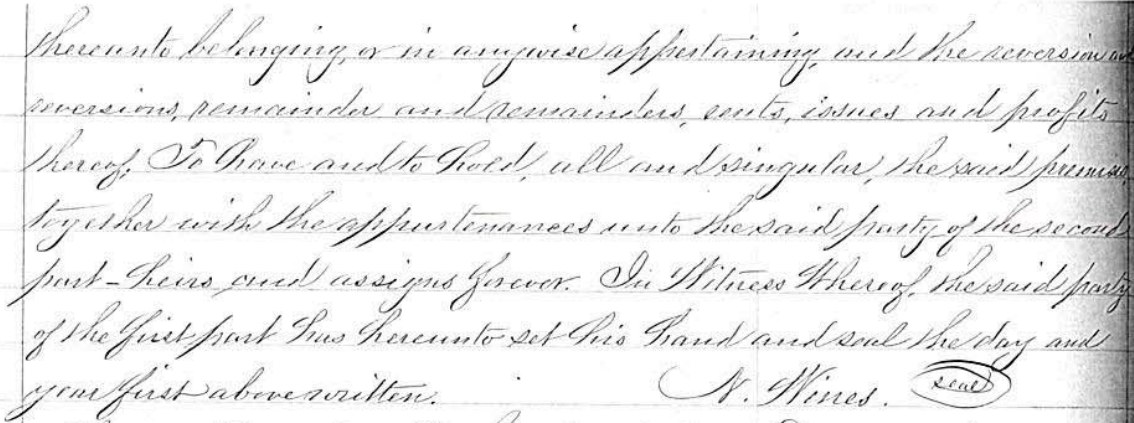 thereunto belonging, or in anywise appertaining, and the reversion and
reversions, remainder and remainders, rents, issues and profits
thereof. To have and to hold, all and singular, the said premises,
together with the appurtenances unto the said party of the second
part - heirs and assigns forever. In Witness Whereof, the said party
of the first part has hereunto set his hand and seal the day and
year first above written. N. Wines. seal